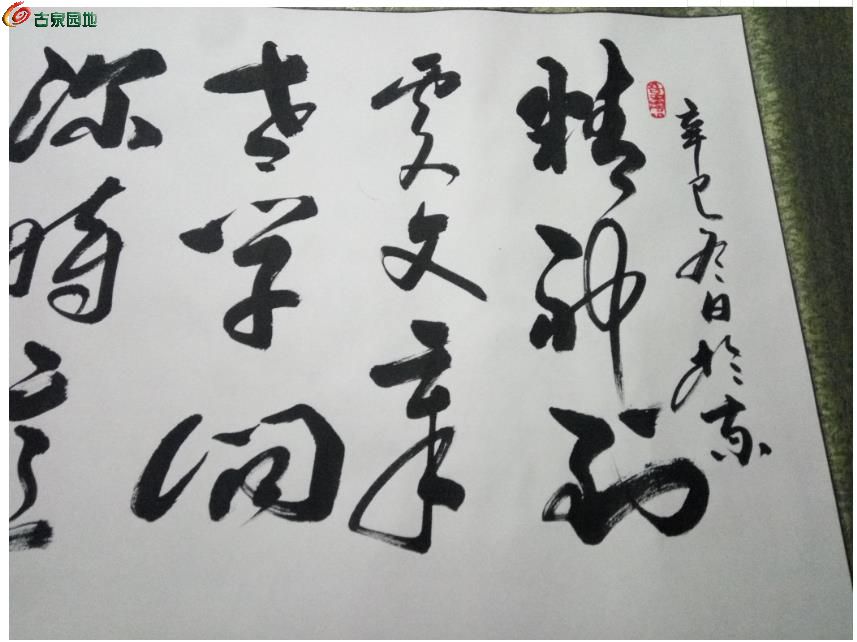 古泉园地
辛巳冬日於京
精神到
處文章
老學問
深時意